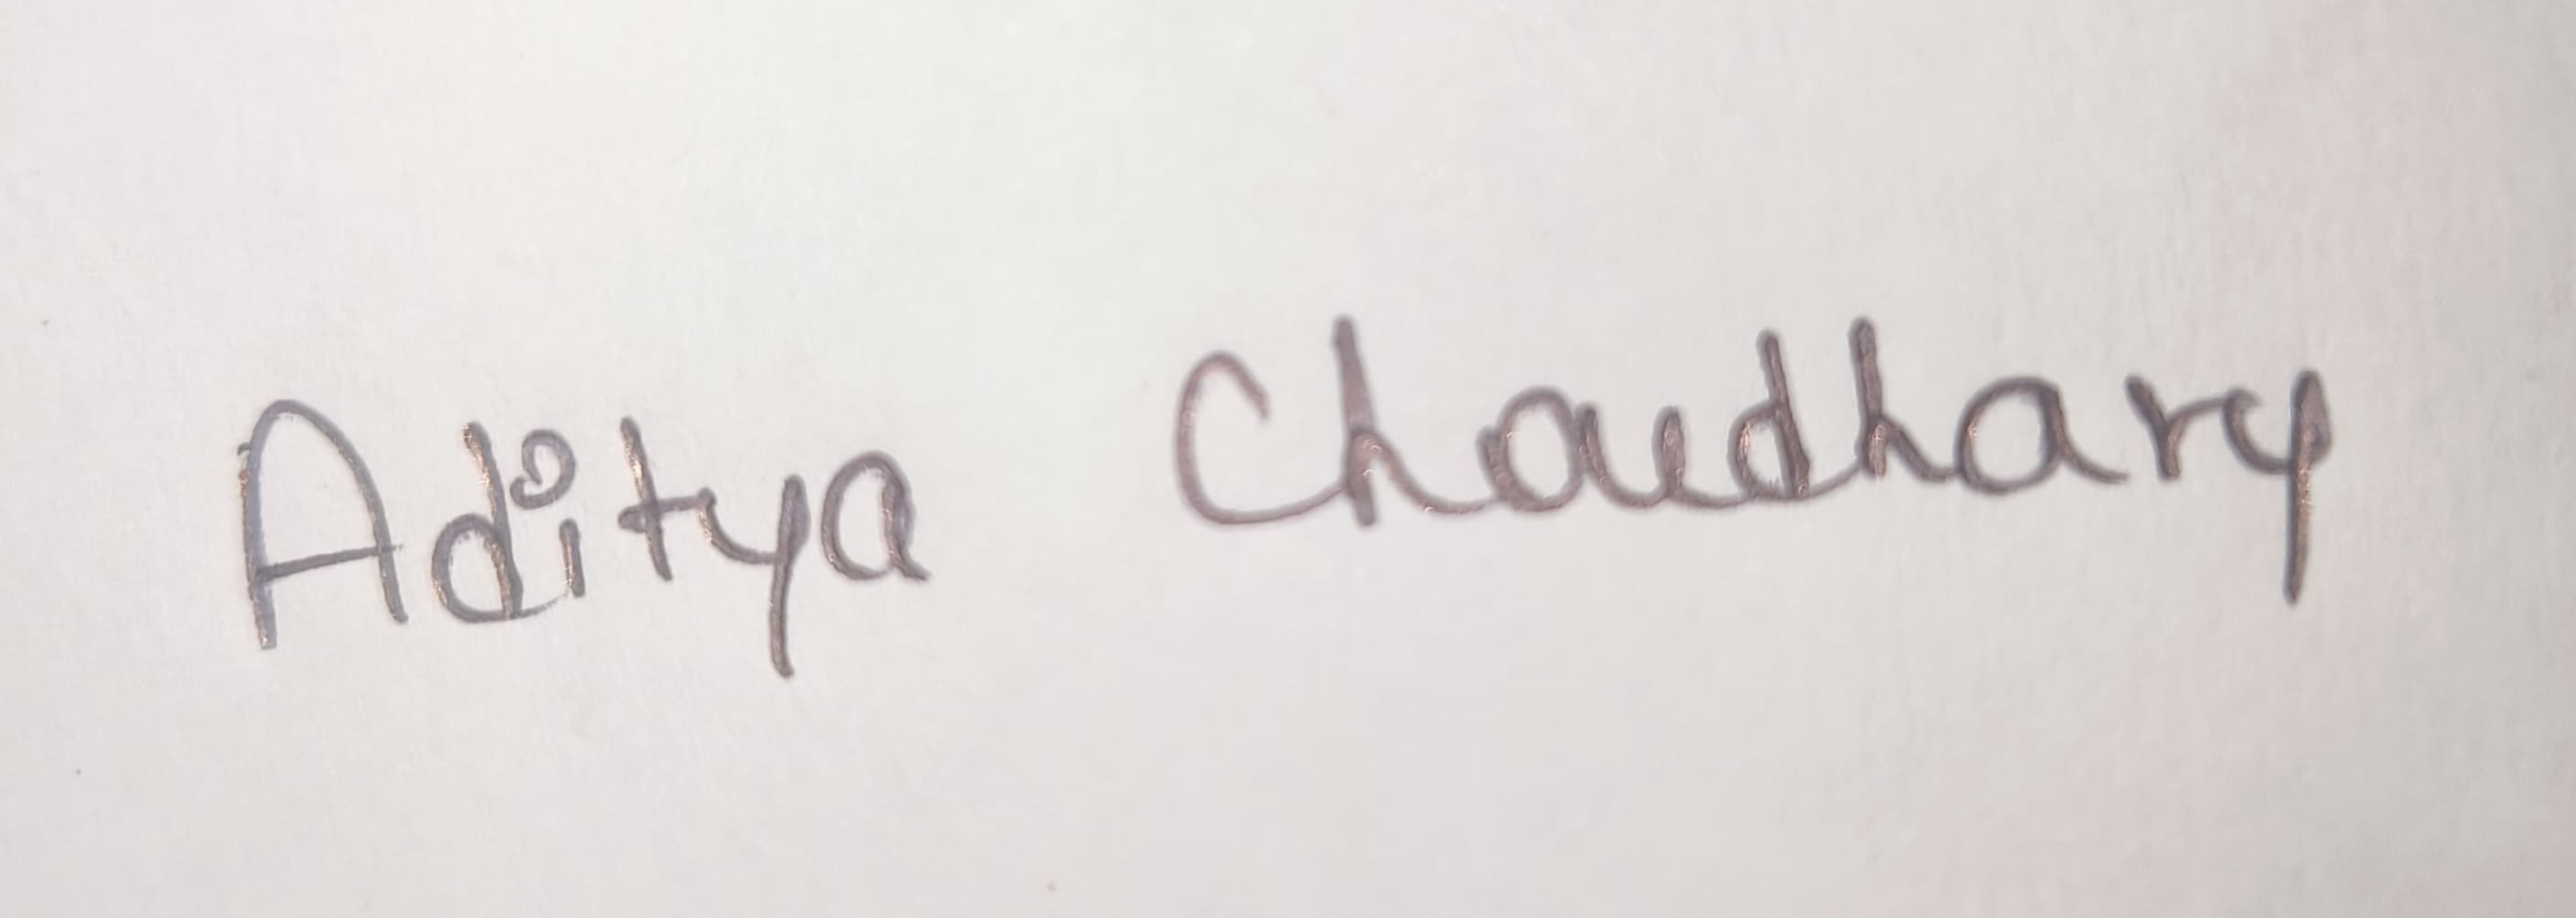 Aditya Choudhary